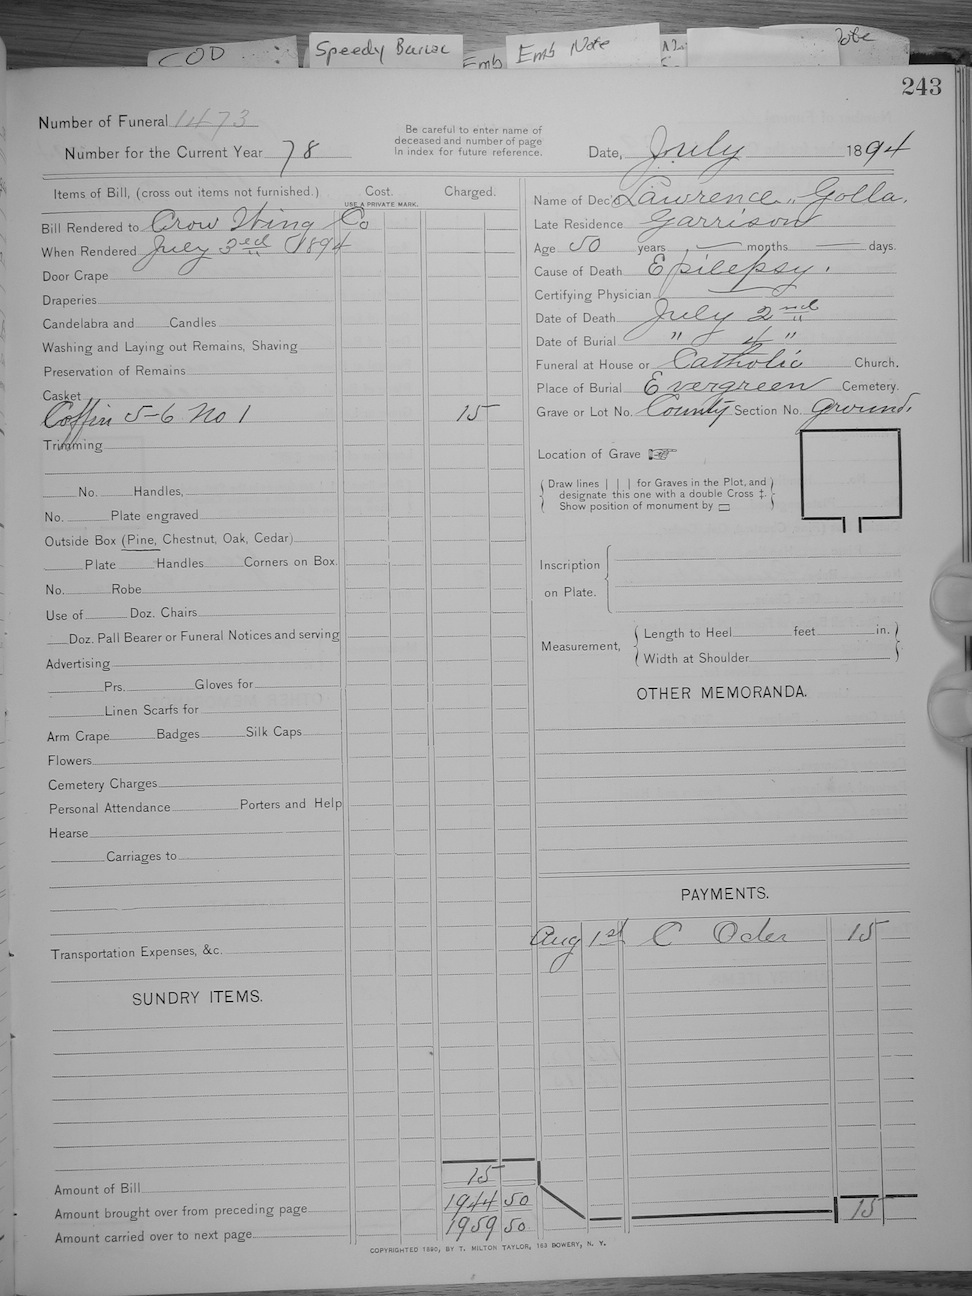 COD
Speedy Burial
Emb
Emb Note
Robe
243
Number of Funeral 1473
Number for the Current Year 78
Be careful to enter name of
deceased and number of page
in index for future reference.
Date, July 1894
Items of Bill, (cross out items not furnished.)
Cost.
USE A PRIVATE MARK.
Charged.
Bill Rendered to Crow Wing Co
When Rendered July 3rd 1894
Door Crape
Draperies
Candelabra and Candles
Washing and Laying out Remains, Shaving
Preservation of Remains
Casket
Coffin 5-6 No 1 15
Trimming
No. Handles,
No. Plate engraved
Outside Box (Pine, Chestnut, Oak, Cedar)
Plate Handles Corners on Box.
No. Robe
Use of Doz. Chairs
Doz. Pall Bearer or Funeral Notices and serving
Advertising
Prs. Gloves for
Linen Scarfs for
Arm Crape Badges Silk Caps
Flowers
Cemetery Charges
Personal Attendance Porters and Help
Hearse
Carriages to
Transportation Expenses, &c.
SUNDRY ITEMS.
Amount of Bill 15
Amount brought over from preceding page 1944 50
Amount carried over to next page 1959 50
Name of Dec'd Lawrence Golla.
Late Residence Garrison
Age 50 years — months — days.
Cause of Death Epilepsy.
Certifying Physician
Date of Death July 2nd
Date of Burial " 4 "
Funeral at House or Catholic Church.
Place of Burial Evergreen Cemetery.
Grave or Lot No. County Section No. Ground.
Location of Grave ☞
Draw lines | | | for Graves in the Plot, and
designate this one with a double Cross ‡.
Show position of monument by ▭
Inscription
on Plate.
Measurement,
Length to Heel feet in.
Width at Shoulder
OTHER MEMORANDA.
PAYMENTS.
Aug 1st C Oder 15
15
COPYRIGHTED 1890, BY T. MILTON TAYLOR, 163 BOWERY, N. Y.